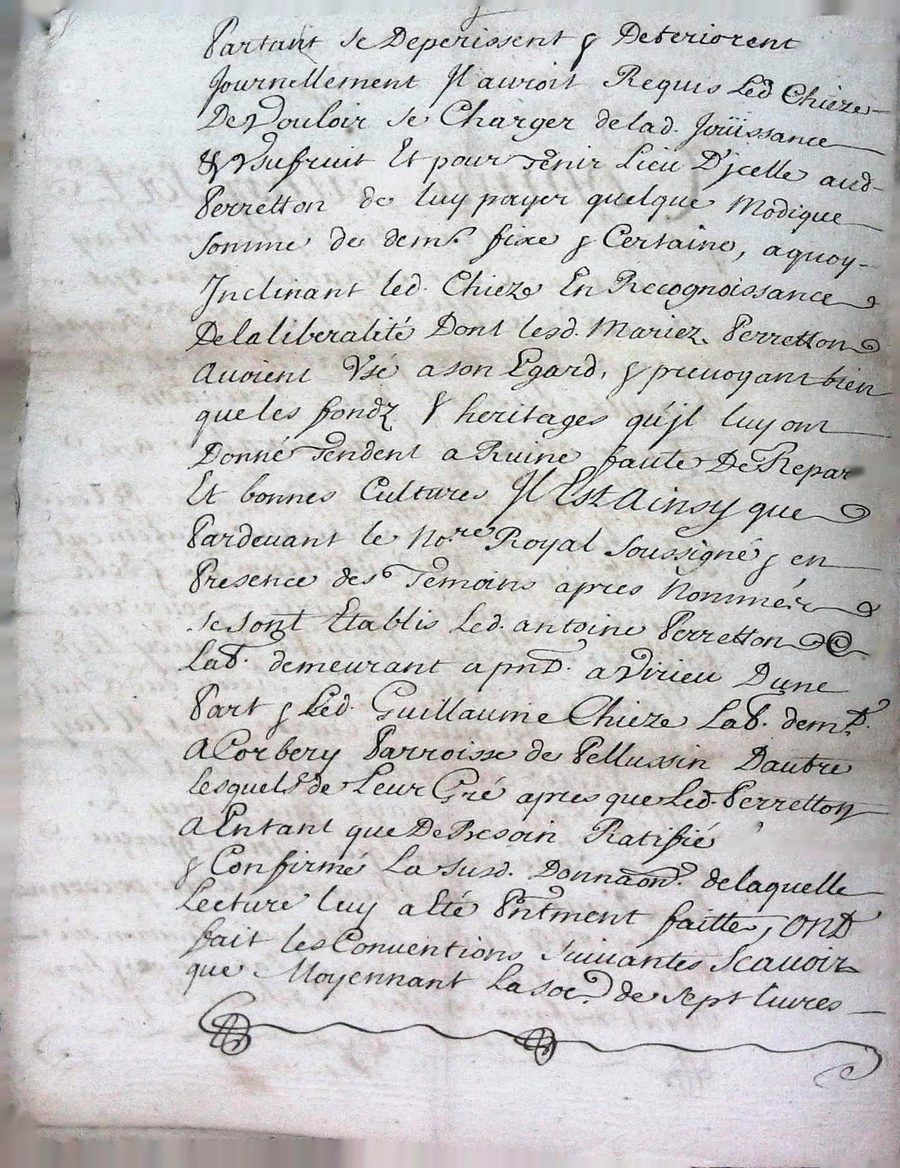 Partant se Deperissent & Deteriorent
Journellement Jl auroit Requis Led Chieze
De Vouloir se Charger delad. Joüissance
& Vsufruit Et pour Tenir Lieu D'jcelle aud
Perretton de luy payer quelque Modique
somme de dem.^r fixe & Certaine, aquoy
Jnclinant led. Chieze En Recognoissance
Delaliberalité Dont lesd. Mariez Perretton
avoient Vsé a son Egard, & prevoyant bien
que les fondz & heritages qu'jl luy ont
Donné Tendent a Ruine faute De Repar
Et bonnes Cultures Jl Est Ainsy que
Pardevant le No.^re Royal soussigné & en
Presence des Temoins apres Nommés
se sont Etablis Led. antoine Perretton
Lab.^r demeurant a pnt. a Virieu Dune
Part & Led. Guillaume Chieze Lab.^r dem.^t
A Corbery Parroisse de Pellussin Dautre
lesquels de Leur Gré apres que Led. Perretton
A Entant que De Besoin Ratifié
& Confirmé La susd. Donnaon. delaquelle
Lecture luy a Eté Pntment faitte, Ont
fait les Conventions suivantes Scavoir
que Moyennant La so.^e de sept livres